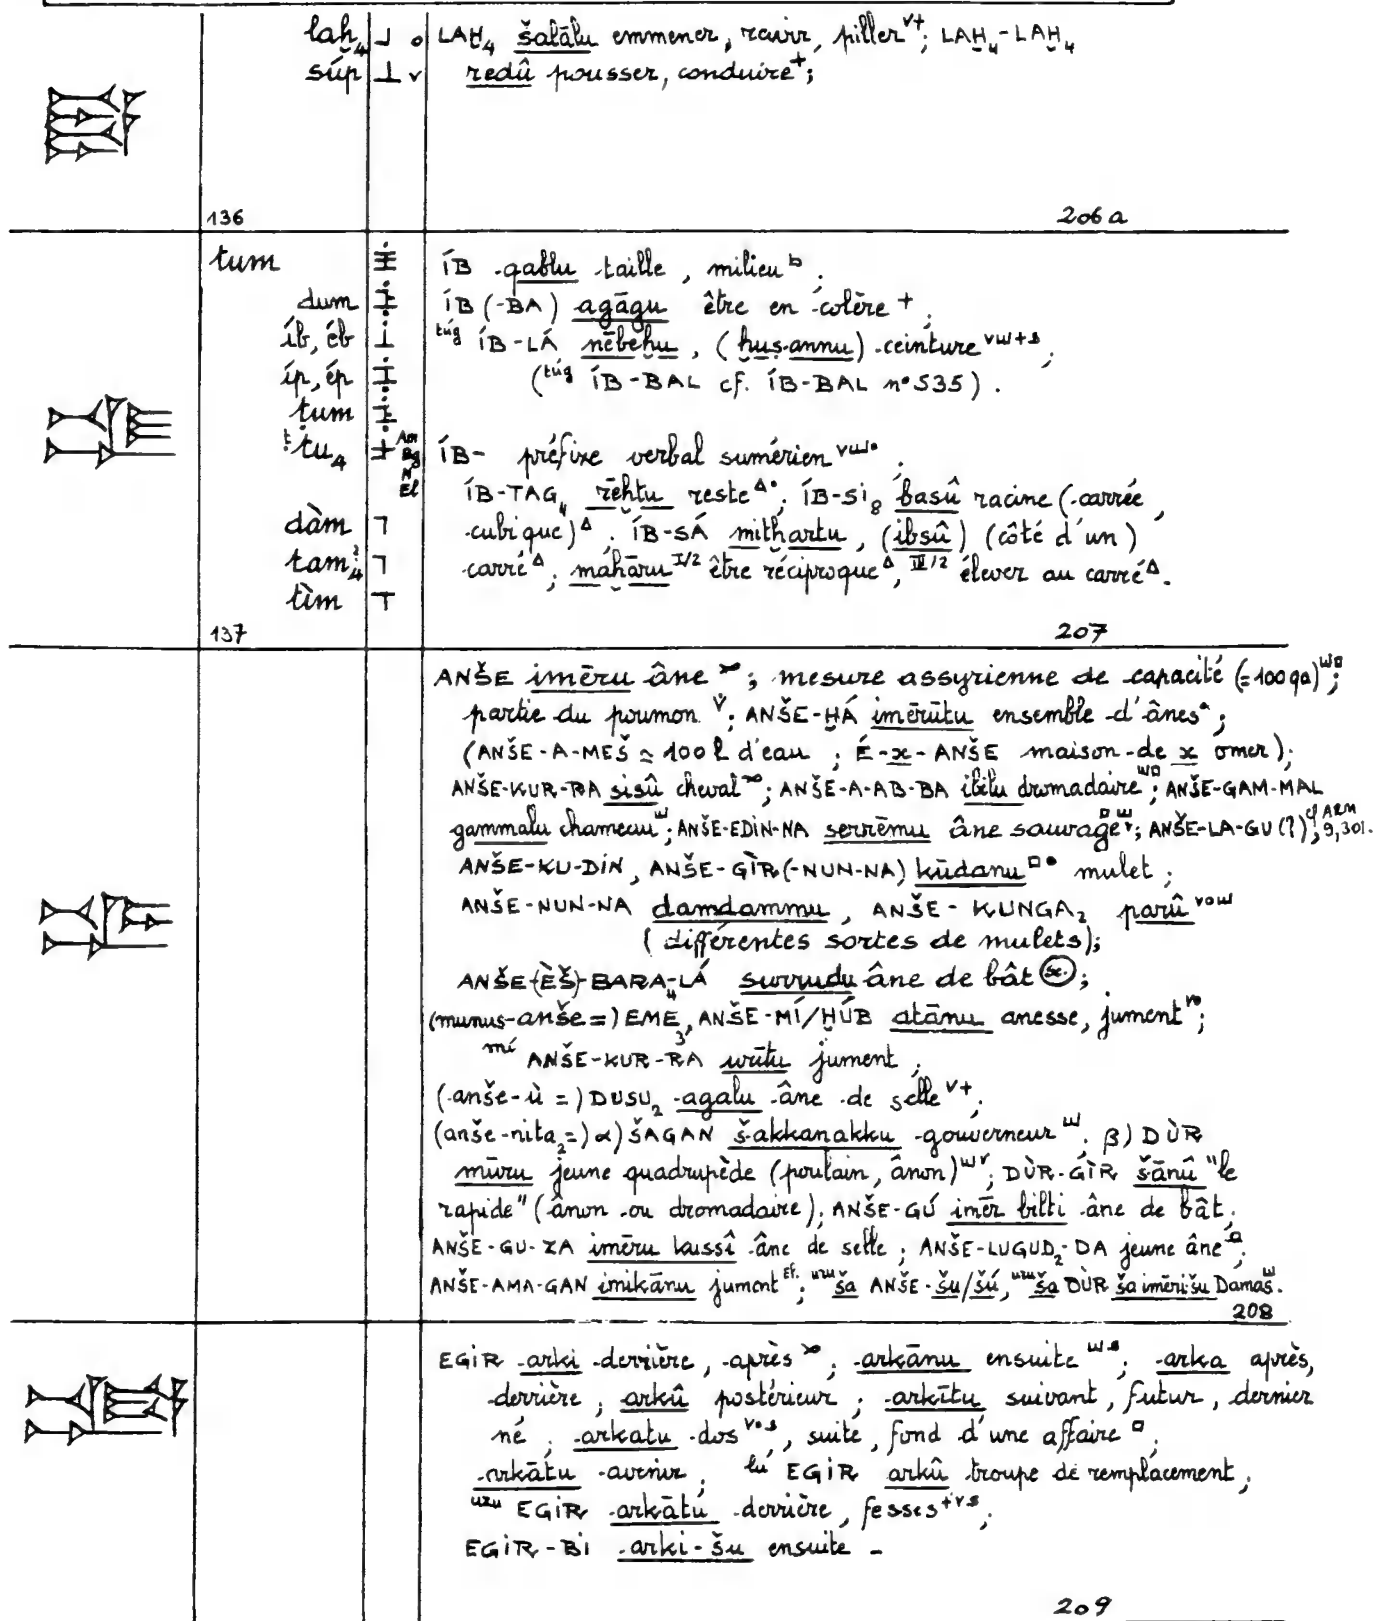 laḫ₄ LAḪ₄ šalālu emmener, ravir, piller; LAḪ₄-LAḪ₄
súp redû pousser, conduire;
136 206a
tum ÍB qablu taille, milieu.
dum ÍB (-BA) agāgu être en colère;
íb, éb túg ÍB-LÁ nēbeḫu, (ḫuṣannu) ceinture;
íp, ép (túg ÍB-BAL cf. ÍB-BAL n° 535).
ṭum
ṭu₄ ÍB- préfixe verbal sumérien.
ÍB-TAG₄ rēḫtu reste; ÍB-Si₈ basû racine (carrée,
dàm cubique); ÍB-SÁ mitḫartu, (ibsû) (côté d'un)
tam₄ carré; maḫāru I/2 être réciproque, III/2 élever au carré.
tìm
137 207
ANŠE imēru âne; mesure assyrienne de capacité (=100 qa);
partie du poumon; ANŠE-ḪÁ imērūtu ensemble d'ânes;
(ANŠE-A-MEŠ ≃ 100 l d'eau; É-x-ANŠE maison de x omer);
ANŠE-KUR-RA sisû cheval; ANŠE-A-AB-BA ibilu dromadaire; ANŠE-GAM-MAL
gammalu chameau; ANŠE-EDIN-NA serrēmu âne sauvage; ANŠE-LA-GU(?) cf ARM 9,301.
ANŠE-KU-DIN, ANŠE-GÌR(-NUN-NA) kūdanu mulet;
ANŠE-NUN-NA damdammu, ANŠE-KUNGA₂ parû
(différentes sortes de mulets);
ANŠE-(ÈŠ)-BARA₄-LÁ surrudu âne de bât;
(munus-anše=) EME₃, ANŠE-MÍ/ḪÚB atānu anesse, jument;
mí ANŠE-KUR-RA urītu jument;
(anše-ù =) DUSU₂ agalu âne de selle;
(anše-nita₂=) α) ŠAGAN šakkanakku gouverneur; β) DÙR
mūru jeune quadrupède (poulain, ânon); DÙR-GÌR šānû "le
rapide" (ânon ou dromadaire); ANŠE-GÚ imēr bilti âne de bât;
ANŠE-GU-ZA imēru kussî âne de selle; ANŠE-LUGUD₂-DA jeune âne;
ANŠE-AMA-GAN imikānu jument El.; uzu ša ANŠE-šu/šú, uzu ša DÙR ša imērišu Damas.
208
EGIR arki derrière, après; arkānu ensuite; arka après,
derrière; arkû postérieur; arkītu suivant, futur, dernier
né; arkatu dos, suite, fond d'une affaire;
arkātu avenir; lú EGIR arkû troupe de remplacement;
uzu EGIR arkātu derrière, fesses;
EGIR-BI arki-šu ensuite -
209